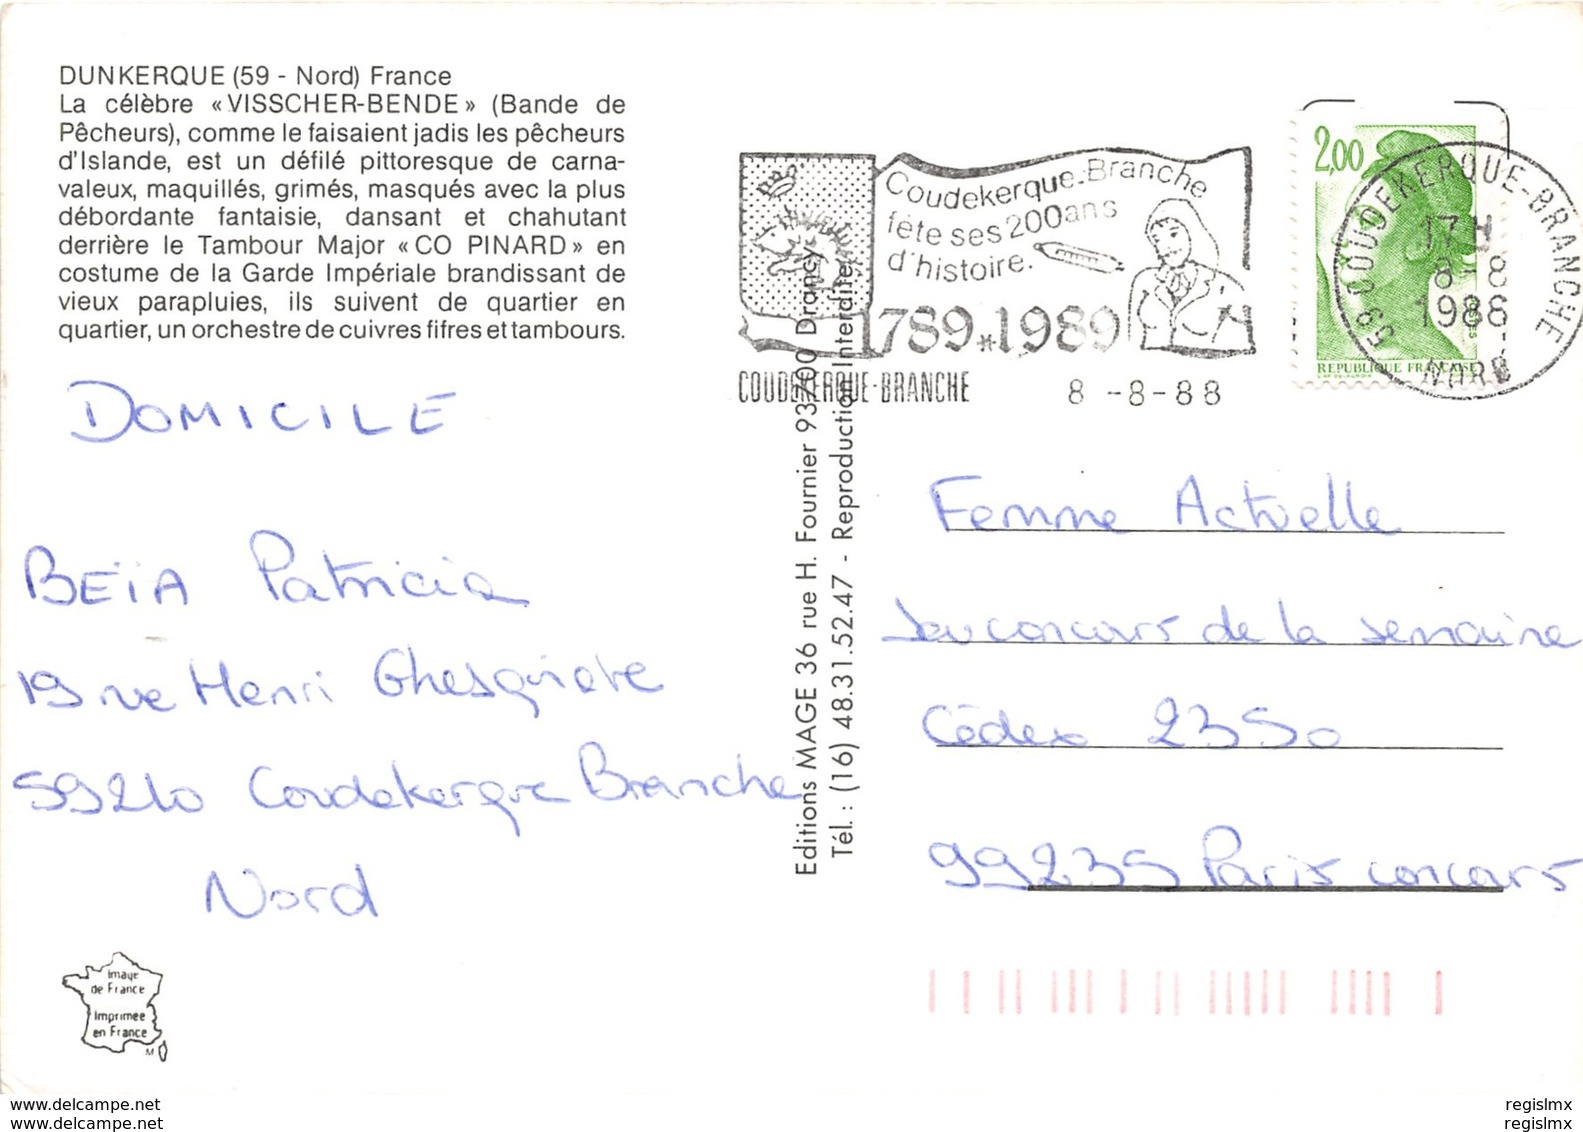 DUNKERQUE (59 - Nord) France
La célèbre «VISSCHER-BENDE» (Bande de
Pêcheurs), comme le faisaient jadis les pêcheurs
d'Islande, est un défilé pittoresque de carna-
valeux, maquillés, grimés, masqués avec la plus
débordante fantaisie, dansant et chahutant
derrière le Tambour Major «CO PINARD» en
costume de la Garde Impériale brandissant de
vieux parapluies, ils suivent de quartier en
quartier, un orchestre de cuivres fifres et tambours.
DOMICILE
BEÏA Patricia
19 rue Henri Ghesquière
59210 Coudekerque Branche
Nord
Image
de France
Imprimee
en France
M
Editions MAGE 36 rue H. Fournier 93700 Drancy
Tél. : (16) 48.31.52.47 - Reproduction Interdite
Coudekerque-Branche
fête ses 200 ans
d'histoire.
1789*1989
COUDEKERQUE-BRANCHE
8 -8-88
2,00
REPUBLIQUE FRANÇAISE
59 COUDEKERQUE-BRANCHE
17 H
8 - 8
1988
NORD
Femme Actuelle
Jeu concours de la semaine
Cédex 2350
99235 Paris concours
www.delcampe.net
www.delcampe.net
regislmx
regislmx